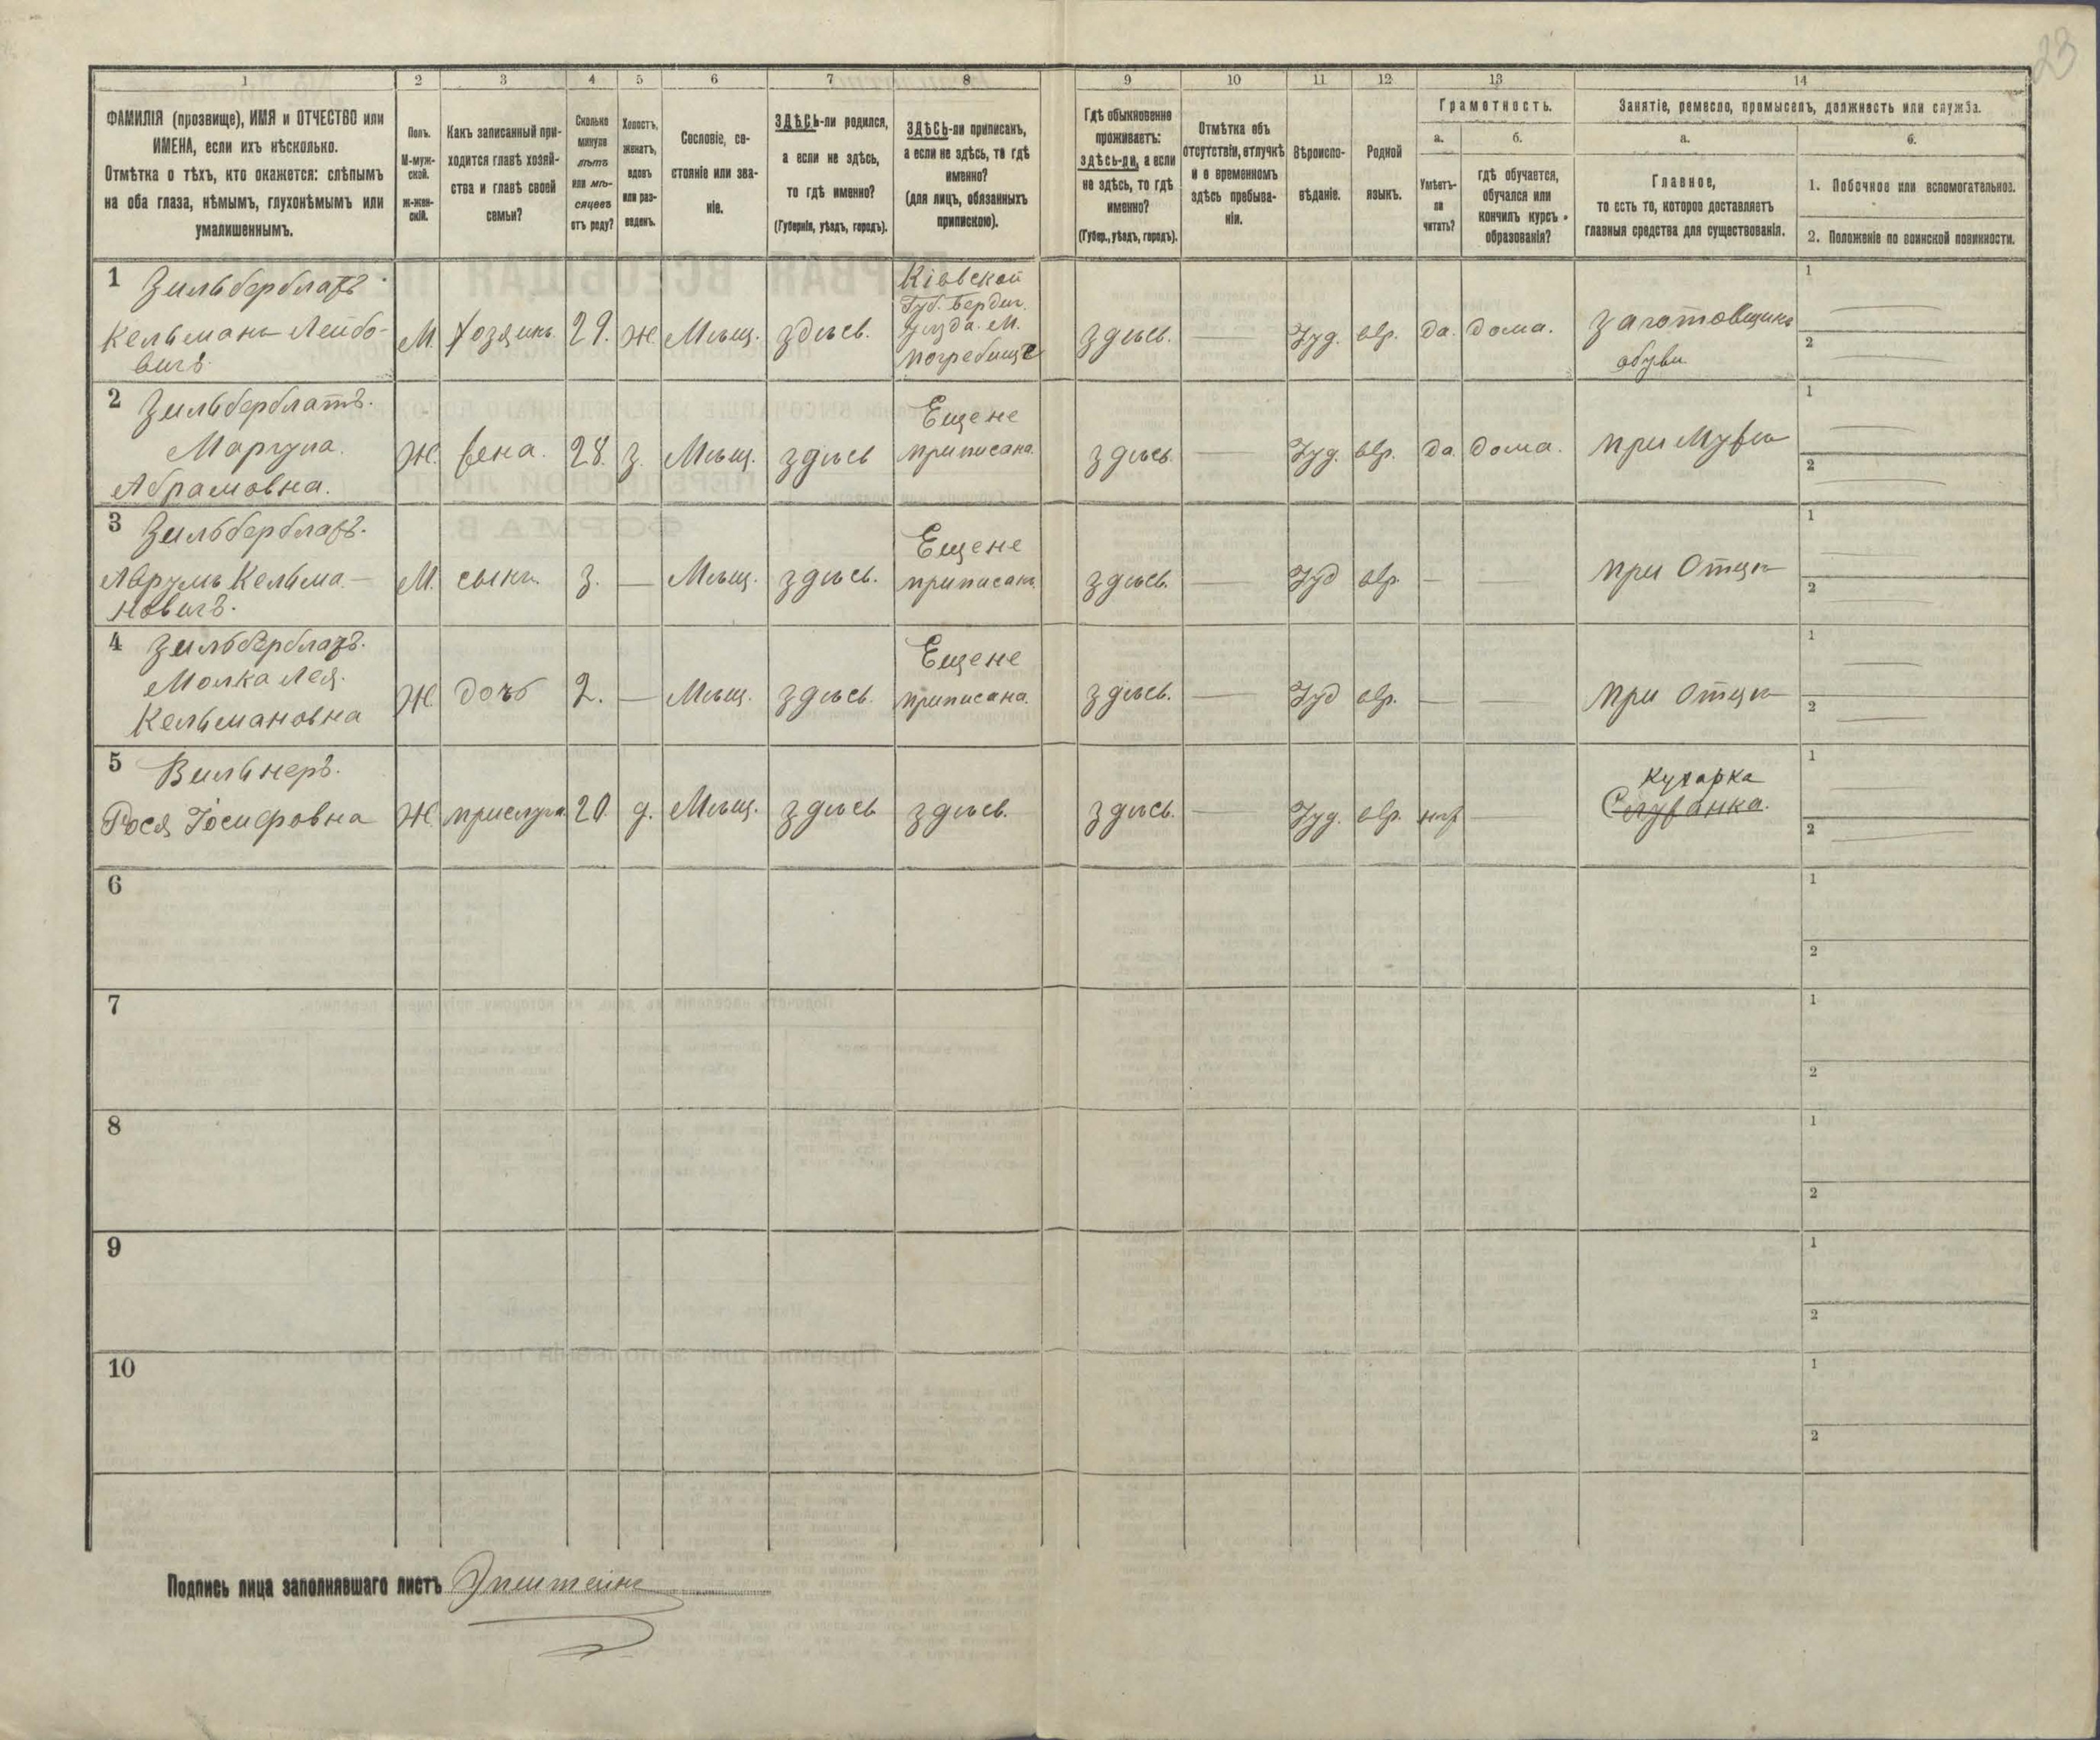 23
1
2
3
4
5
6
7
8
9
10
11
12
13
14
ФАМИЛІЯ (прозвище), ИМЯ и ОТЧЕСТВО или
ИМЕНА, если ихъ нѣсколько.
Отмѣтка о тѣхъ, кто окажется: слѣпымъ
на оба глаза, нѣмымъ, глухонѣмымъ или
умалишеннымъ.
Полъ.
М-муж-
ской.
ж-жен-
скій.
Какъ записанный при-
ходится главѣ хозяй-
ства и главѣ своей
семьи?
Сколько
минуло
лѣтъ
или мѣ-
сяцевъ
отъ роду?
Холостъ,
женатъ,
вдовъ
или раз-
веденъ.
Сословіе, со-
стояніе или зва-
ніе.
ЗДѢСЬ-ли родился,
а если не здѣсь,
то гдѣ именно?
(Губернія, уѣздъ, городъ).
ЗДѢСЬ-ли приписанъ,
а если не здѣсь, то гдѣ
именно?
(для лицъ, обязанныхъ
припискою).
Гдѣ обыкновенно
проживаетъ:
здѣсь-ли, а если
не здѣсь, то гдѣ
именно?
(Губер., уѣздъ, городъ).
Отмѣтка объ
отсутствіи, отлучкѣ
и о временномъ
здѣсь пребыва-
ніи.
Вѣроиспо-
вѣданіе.
Родной
языкъ.
Грамотность.
а.
Умѣетъ-
ли
читать?
б.
гдѣ обучается,
обучался или
кончилъ курсъ
образованія?
Занятіе, ремесло, промыселъ, должность или служба.
а.
Главное,
то есть то, которое доставляетъ
главныя средства для существованія.
б.
1. Побочное или вспомогательное.
2. Положеніе по воинской повинности.
1 Зильберблатъ
Кельманъ Лейбо-
вичъ
М. Хозяинъ 29. Ж. Мѣщ. здѣсь.
Кіевской
Губ. Бердич.
уѣзда. М.
Погребище
здѣсь. — Іуд. евр. да. дома.
заготовщикъ
обуви
1
2
2 Зильберблатъ.
Маргула.
Абрамовна.
Ж. жена. 28. з. Мѣщ. здѣсь
Еще не
приписана.
здѣсь — Іуд. евр. да. дома. при Мужѣ
1
2
3 Зильберблатъ.
Аврумъ Кельма-
новичъ.
М. сынъ. 3. — Мѣщ. здѣсь.
Еще не
приписанъ.
здѣсь. — Іуд евр. — — при Отцѣ
1
2
4 Зильберблатъ.
Молка Лея.
Кельмановна
Ж. дочь 2. — Мѣщ. здѣсь.
Еще не
приписана.
здѣсь. — Іуд евр. — — при отцѣ
1
2
5 Вильнеръ.
Рося Іосифовна
Ж. прислуга 20. д. Мѣщ. здѣсь здѣсь.
здѣсь. — Іуд. евр. нѣт —
Кухарка
Служанка.
1
2
6
1
2
7
1
2
8
1
2
9
1
2
10
1
2
Подпись лица заполнявшаго листъ Эпштейнъ